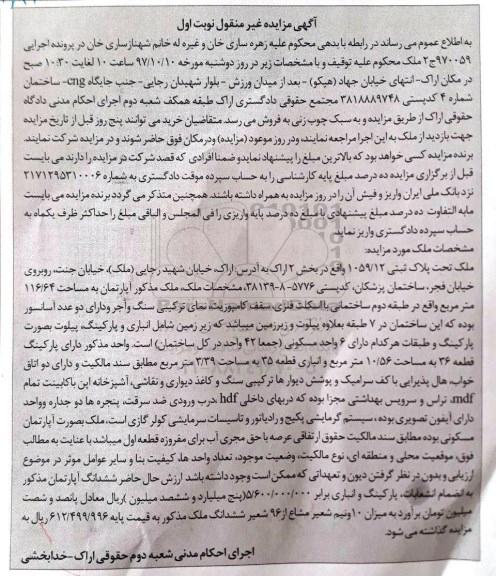 آگهی مزایده غیر منقول نوبت اول
به اطلاع عموم می رساند در رابطه با بدهی محکوم علیه زهره ساری خان و غیره له خانم شهناز ساری خان در پرونده اجرایی
۹۷۰۰۵۹ج۲ ملک محکوم علیه توقیف و با مشخصات زیر در روز دوشنبه مورخه ۹۷/۱۰/۱۰ ساعت ۱۰ لغایت ۱۰:۳۰ صبح
در مکان اراک-انتهای خیابان جهاد (هپکو) - بعد از میدان ورزش - بلوار شهیدان رجایی- جنب جایگاه cng- ساختمان
شماره ۴ کدپستی ۳۸۱۸۸۸۹۷۴۸ مجتمع حقوقی دادگستری اراک طبقه همکف شعبه دوم اجرای احکام مدنی دادگاه
حقوقی اراک از طریق مزایده و به سبک چوب زنی به فروش می رسد. متقاضیان خرید می توانند پنج روز قبل از تاریخ مزایده
جهت بازدید از ملک به این اجرا مراجعه نمایند، ودر روز موعود (مزایده) ودرمکان فوق حاضر شوند و در مزایده شرکت نمایند.
برنده مزایده کسی خواهد بود که بالاترین مبلغ را پیشنهاد نماید و ضمنا افرادی که قصد شرکت در مزایده را دارند می بایست
قبل از برگزاری مزایده ده درصد مبلغ پایه کارشناسی را به حساب سپرده موقت دادگستری به شماره ۲۱۷۱۲۹۵۳۱۰۰۰۶
نزد بانک ملی ایران واریز و فیش آن را در روز مزایده به همراه داشته باشند. همچنین متذکر می گردد برنده مزایده می بایست
مابه التفاوت ده درصد مبلغ پیشنهادی با مبلغ ده درصد پایه واریزی را فی المجلس و الباقی مبلغ را حداکثر ظرف یکماه به
حساب سپرده دادگستری واریز نماید.
مشخصات ملک مورد مزایده:
ملک تحت پلاک ثبتی ۱۰۵۹/۱۲ واقع در بخش ۲ اراک به آدرس: اراک، خیابان شهید رجایی (ملک)، خیابان جنت، روبروی
خیابان فجر، ساختمان پزشکان، کدپستی ۵۷۷۶-۳۸۱۳۹۸، مشخصات ملک، ملک مذکور آپارتمان به مساحت ۱۱۶/۶۴
متر مربع واقع در طبقه دوم ساختمانی با اسکلت فلزی، سقف کامپوزیت، نمای ترکیبی سنگ و آجر و دارای دو عدد آسانسور
بوده که این ساختمان در ۷ طبقه بعلاوه پیلوت و زیرزمین میباشد که زیر زمین شامل انباری و پارکینگ، پیلوت بصورت
پارکینگ و طبقات هرکدام دارای ۶ واحد مسکونی (جمعا ۴۲ واحد در کل ساختمان) است. واحد مذکور دارای پارکینگ
قطعه ۳۶ به مساحت ۱۰/۵۶ متر مربع و انباری قطعه ۳۵ به مساحت ۳/۳۹ متر مربع مطابق سند مالکیت و دارای دو اتاق
خواب، هال پذیرایی با کف سرامیک و پوشش دیوار ها ترکیبی سنگ و کاغذ دیواری و نقاشی، آشپزخانه اپن با کابینت تمام
mdf، تراس و سرویس بهداشتی مجزا بوده که دربهای داخلی hdf ،درب ورودی ضد سرقت، پنجره ها دو جداره وواحد
دارای آیفون تصویری بوده، سیستم گرمایشی پکیج و رادیاتور و تاسیسات سرمایشی کولر گازی است، ملک بصورت آپارتمان
مسکونی بوده مطابق سند مالکیت حقوق ارتفاقی عرصه با حق مجری آب برای مفروزه قطعه اول میباشد با عنایت به مطالب
فوق، موقعیت محلی و منطقه ای، نوع مالکیت، وضعیت موجود، تعداد واحد ها، کیفیت بنا و سایر عوامل موثر در موضوع
ارزیابی و بدون در نظر گرفتن دیون و تعهداتی که ممکن است وجود داشته باشد ارزش حال حاضر ششدانگ آپارتمان مذکور
به انضمام انشعابات، پارکینگ و انباری برابر ۵/۶۰۰/۰۰۰/۰۰۰(پنج میلیارد و ششصد میلیون )ریال معادل پانصد و شصت
میلیون تومان برآورد به میزان ۱۰ونیم شعیر مشاع از ۹۶ شعیر ششدانگ ملک مذکور به قیمت پایه ۶۱۲/۴۹۹/۹۹۶ ریال به
مزایده گذاشته می شود.
اجرای احکام مدنی شعبه دوم حقوقی اراک -خدابخشی